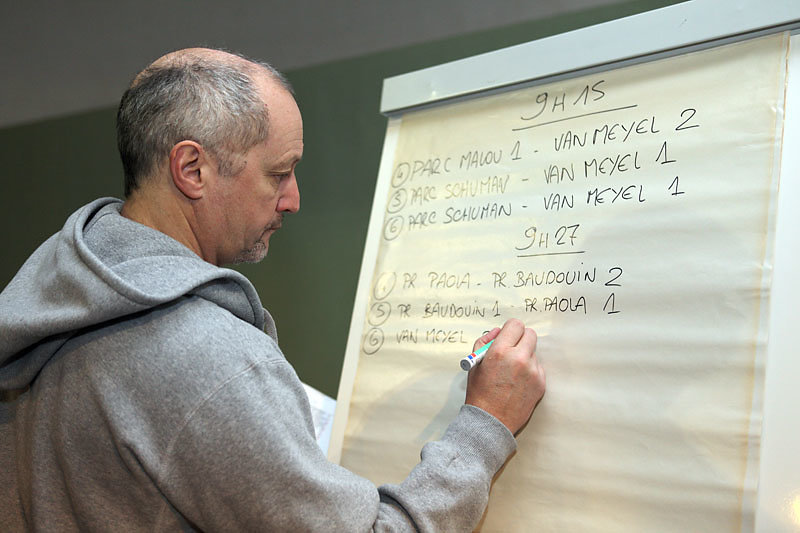 9H15
④ PARC MALOU 1 - VAN MEYEL 2
⑤ PARC SCHUMAN - VAN MEYEL 1
⑥ PARC SCHUMAN - VAN MEYEL 1
9H27
④ PR. PAOLA - PR. BAUDOUIN 2
⑤ PR BAUDOUIN 1 - PR. PAOLA 1
⑥ VAN MEYEL